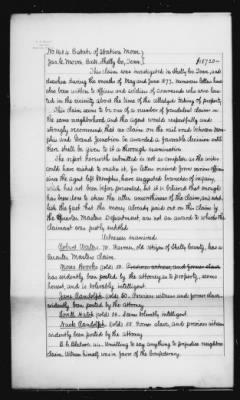 No 1454 Estate of
Jas. E. Moore Exr. Shelby Co., Tenn. } $18720—
This claim was investigated in Shelby Co. Tenn., and
elsewhere during the months of May and June 1877. Numerous letters have
also been written to officers and soldiers of commands who were loca-
ted in the vicinity about the time of the alledged taking of property.
This claim seems to be one of a number of fraudulent claims in
the same neighborhood, and the agent would respectfully and
strongly recommend that no claim on the rail road between Memp-
his and Grand Junction be awarded a favorable decision until
there shall be given to it a thorough examination.
The report herewith submitted is not as complete as the writer
could have wished to make it, for letters received from various officers
since the agent left Memphis, have suggested branches of inquiry,
which has not been before presented, but it is believed that enough
has been done to show the utter unworthiness of the claim, and
the fact that the money already paid out on this claim by
the Quarter Masters Department was not on account to which the
claimant was justly entitled.
Witnesses examined.
Robert Waller, W. Farmer, old citizen of Shelby County, has a
Quarter Masters Claim.
Moses Brooks cold. 40. Previous witness, and former slave
has evidently been posted by the attorney as to property, seems
honest, and is tolerably intelligent.
Jane Randolph cold. 50. Previous witness and former slave,
evidently been posted by the attorney.
cold. 30. Seems tolerably intelligent.
Randolph. cold. 55. Former slave, and previous witness
evidently been posted by the attorney.
Unwilling to say anything to prejudice neighbors
claim. Witness himself was in favor of the Confederacy.